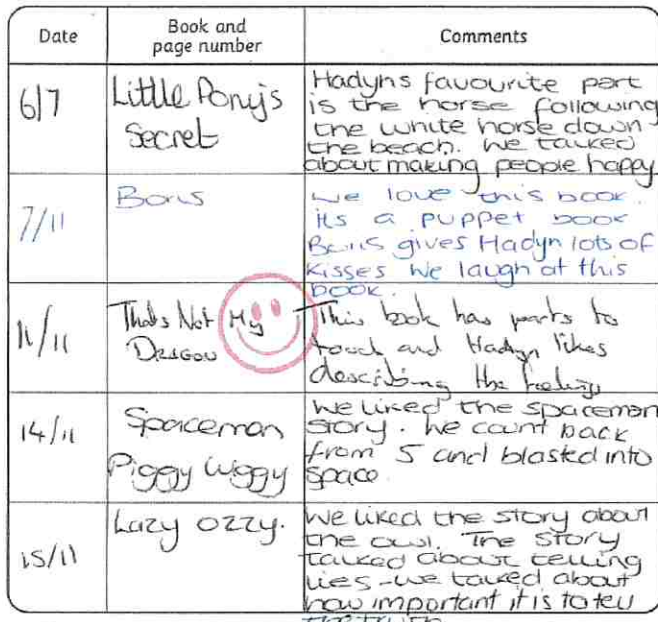 Date
Book and
page number
Comments
6/7
Little Pony's
Secret
Hadyns favourite part
is the horse following
the white horse down
the beach. We talked
about making people happy
7/11
Boris
we love this book.
its a puppet book
Boris gives Hadyn lots of
kisses we laugh at this
book.
11/11
Thats Not My
Dragon
This book has parts to
touch and Hadyn likes
describing the feelings
14/11
Spaceman
Piggy Wiggy
We liked the spaceman
story. We count back
from 5 and blasted into
space.
15/11
Lazy Ozzy.
We liked the story about
the owl. The story
talked about telling
lies - we talked about
how important it is to tell
the truth